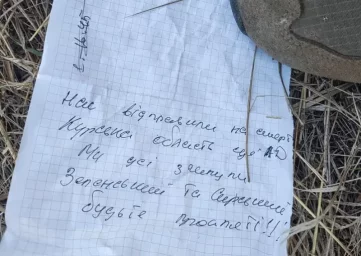 Нас відправили на смерть
Курська область це
Ми усі загинули
Зеленський та Сирський
будьте прокляті!!!